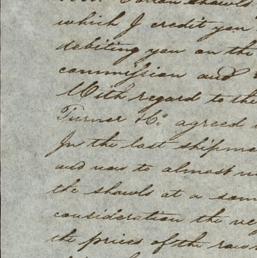 which I credit you
debiting you on the
commission and
With regard to the
Turner & Co. agreed
In the last shipme
and now to almost
the shawls at a som
consideration the ve
the prices of the raw